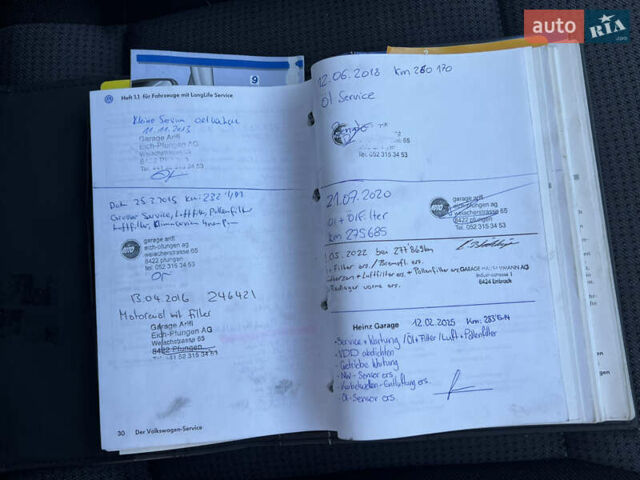 auto RIA .com
9
Heft 1.1 für Fahrzeuge mit LongLife Service
Kleine Service
11.11.2013
Garage Arifi
Eich-Pfungen AG
8422
Tel. 052 315 34 53
Dat: 25.2.2015 Km: 232
Grosser Service, Luftfilter, Pollenfilter
Luftfilter,
garage arifi
eich-pfungen ag
weiacherstrasse 65
8422 pfungen
tel. 052 315 34 53
13.04.2016 246421
Motorenöl mit Filter
Garage Arifi
Eich-Pfungen AG
Weiacherstrasse 65
8422 Pfungen
Tel. +41 52 315 34 53
30 Der Volkswagen-Service
12.06.2018 Km 260 170
Öl Service
Tel. 052 315 34 53
21.07.2020
Öl + Ölfilter
Km 275685
garage arifi
eich-pfungen ag
weiacherstrasse 65
8422 pfungen
tel. 052 315 34 53
.05.2022 bei 277'869km
+ Filter ers. / Bremsfl. ers.
+ Luftfilter ers. + Pollenfilter ers.
vorne ers.
GARAGE AG
Industriestrasse
8424 Embrach
Heinz Garage 12.02.2025 Km:
- Service + Wartung / Öl + Filter / Luft + Pollenfilter
- VDD abdichten
- Getriebe Wartung
- NW-Sensor ers.
- Kurbelwellen-Entlüftung ers.
- Öl-Sensor ers.